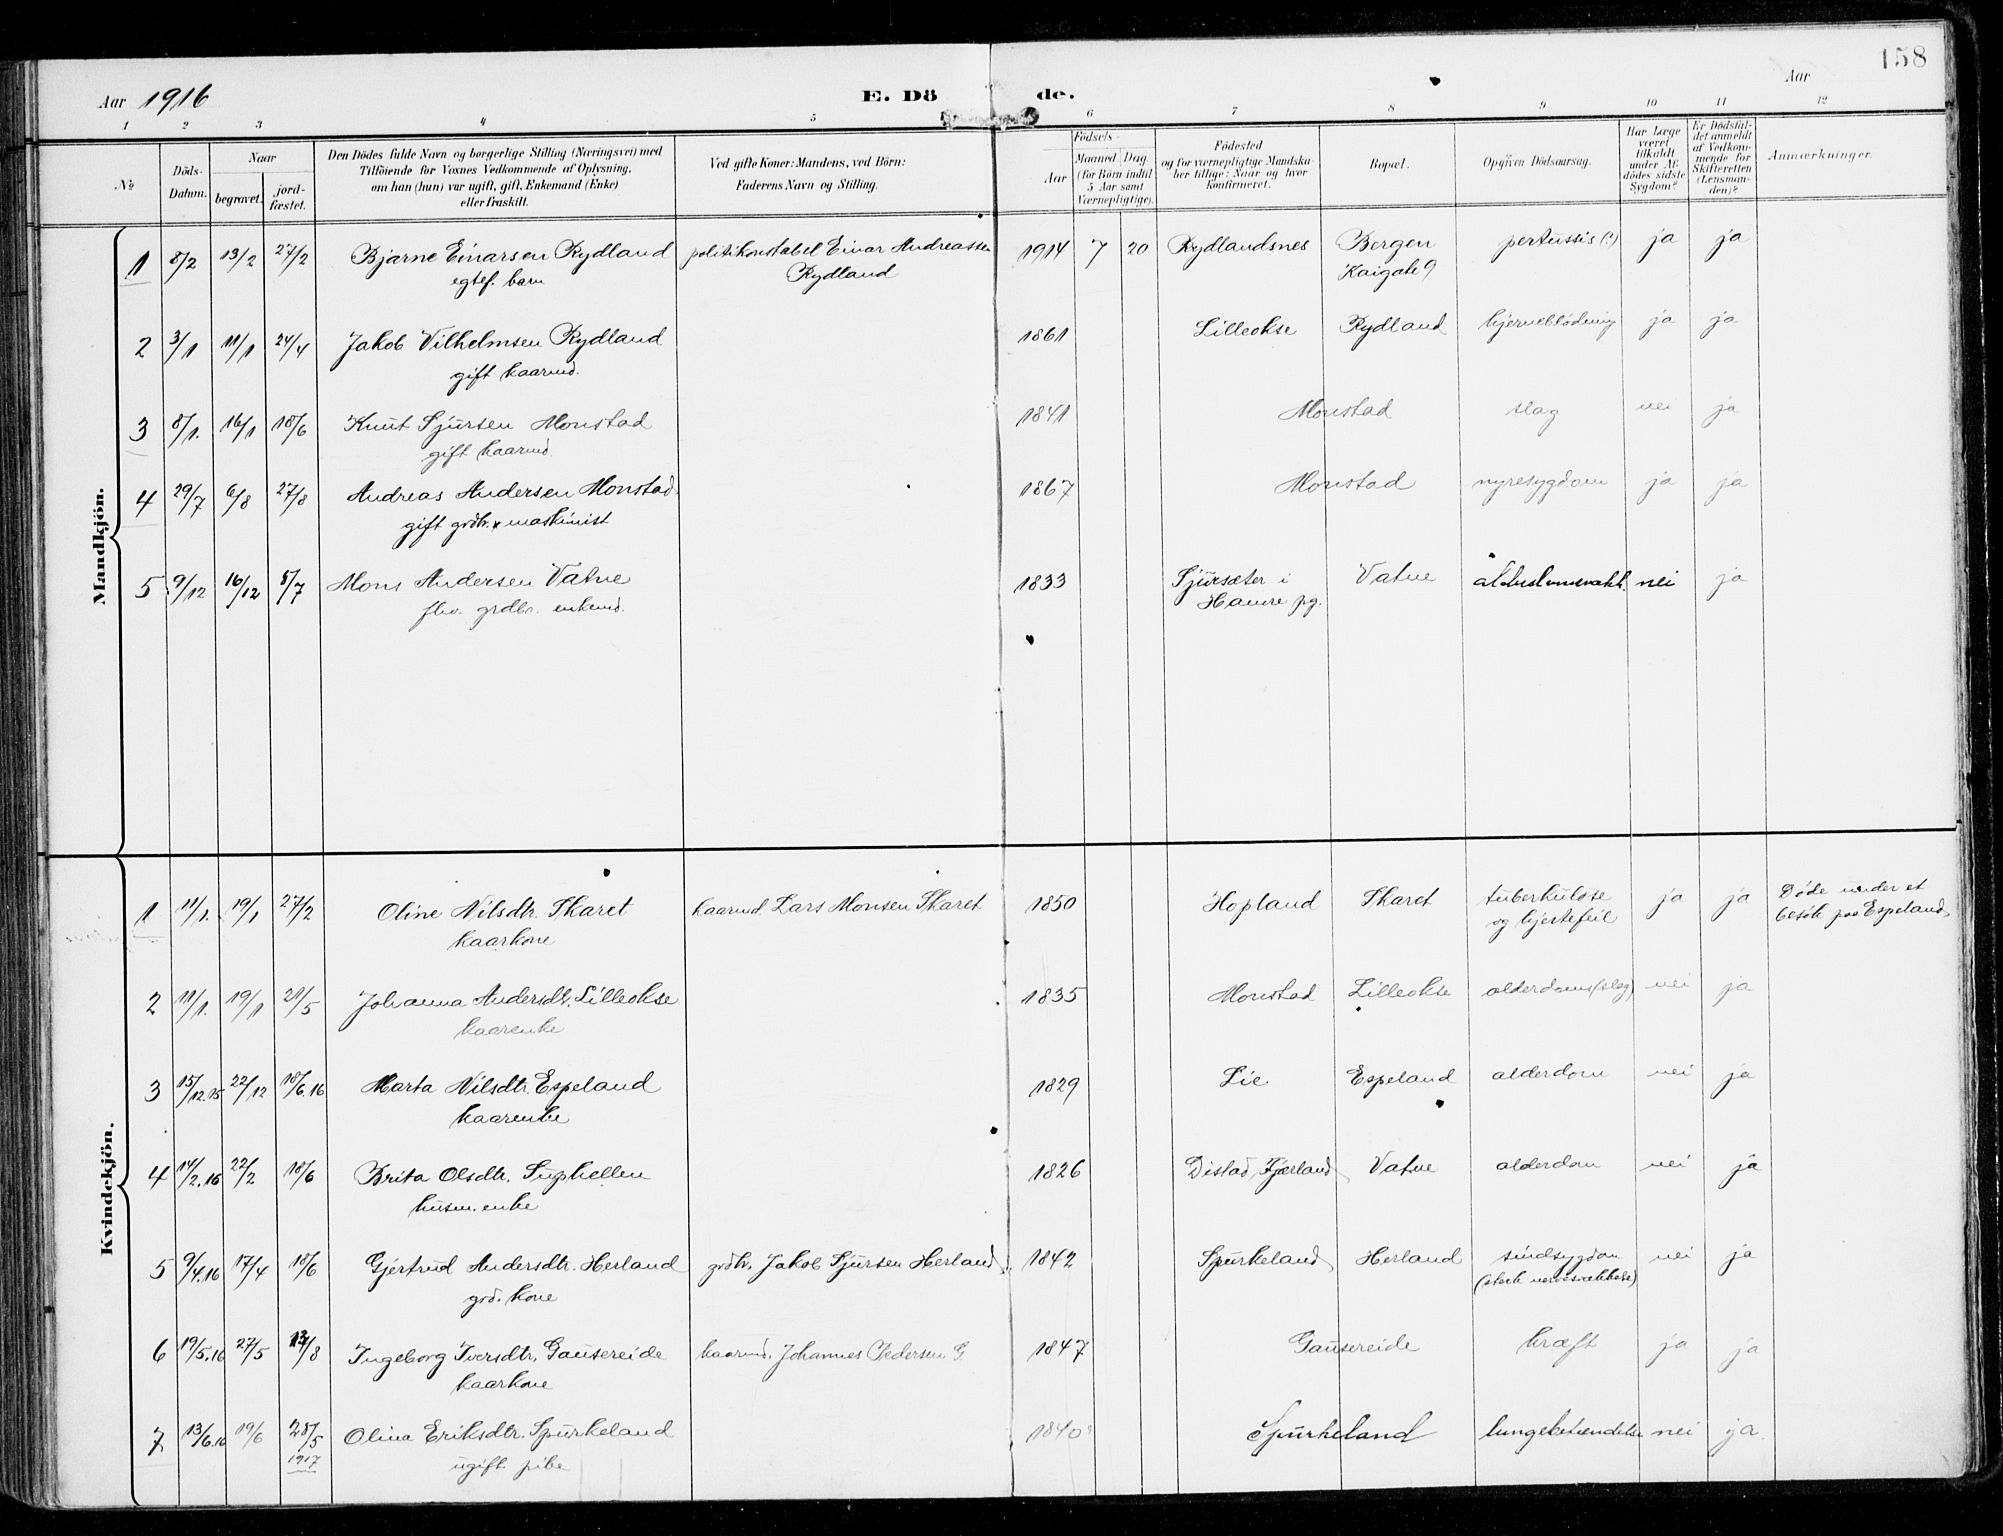 158
Aar 1916 E. Dö de. Aar
1 2 3 4 5 6 7 8 9 10 11 12
№
Döds-Datum.
Naar
begravet.
jord-fæstet.
Den Dödes fulde Navn og borgerlige Stilling (Næringsvei) med
Tilföiende for Voxnes Vedkommende af Oplysning,
om han (hun) var ugift, gift, Enkemand (Enke)
eller fraskilt.
Ved gifte Koner: Mandens, ved Börn:
Faderens Navn og Stilling.
Födsels-
Aar
Maaned Dag
(for Börn indtil
5 Aar samt
Værnepligtige).
Födested
og for værnepligtige Mandska-
ber tillige: Naar og hvor
konfirmeret.
Bopæl.
Opgiven Dödsaarsag.
Har Læge
været
tilkaldt
under Af-
dödes sidste
Sygdom?
Er Dödsfal-
det anmeldt
af Vedkom-
mende for
Skifteretten
(Lensman-
den)?
Anmærkninger.
Mandkjön.
1 8/2 13/2 27/2 Bjarne Einarsen Rydland politikonstabel Einar Andreassen 1914 7 20 Rydlandsnes Bergen pertussis (?) ja ja
egtef. barn Rydland Kaigate 9
2 3/1 11/1 24/4 Jakob Vilhelmsen Rydland 1861 Lilleokse Rydland hjerneblødning ja ja
gift kaarmd.
3 8/1. 16/1 18/6 Knut Sjursen Monstad 1841 Monstad slag nei ja
gift kaarmd.
4 29/7 6/8 27/8 Andreas Andersen Monstad 1867 Monstad nyresygdom ja ja
gift grdbr. x maskinist
5 9/12 16/12 8/7 Mons Andersen Vatne 1833 Sjursæter i Vatne nei ja
fhv. grdbr. enkemd. Hamre pg.
Kvindekjön.
1 11/1. 19/1 27/2 Oline Nilsdtr. Skaret kaarmd. Lars Monsen Skaret 1850 Hopland Skaret tuberkulose ja ja Døde under et
kaarkone og hjertefeil besøk paa Espeland,
2 11/1. 19/1 21/5 Johanna Andersdtr. Lilleokse 1835 Monstad Lilleokse alderdoms(slag) nei ja
kaarenke
3 15/12.15 22/12 18/6.16 Marta Nilsdtr. Espeland 1829 Lie Espeland alderdom nei ja
kaarenke
4 14/2.16 22/2 18/6 Brita Olsdtr. Suphellen 1826 Distad, Fjærland Vatne alderdom nei ja
husm. enke
5 9/4.16 17/4 18/6 Gjertrud Andersdtr. Herland grdbr. Jakob Sjursen Herland 1842 Spurkeland Herland sindsygdom nei ja
grd. kone (sterk nervesvækkelse)
6 19/5.16 27/5 /8 Ingeborg Iversdtr. Gausereide kaarmd. Johannes Pedersen G. 1847 Gausereide kræft ja ja
kaarkone
7 13/6.16 19/6 28/5 Olina Eriksdtr. Spurkeland 1840 Spurkeland lungebetændelse nei ja.
1917 ugift pike